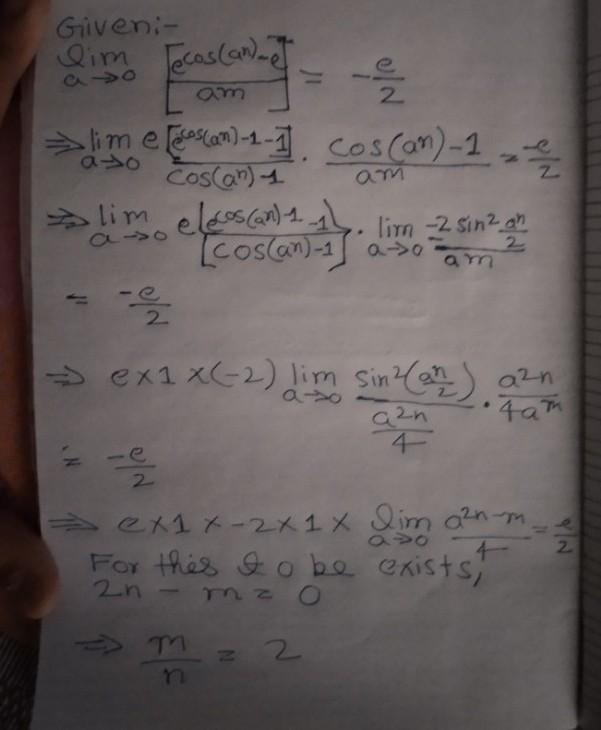 Given:-
lim a→0 [e^cos(aⁿ) - e / am] = -e/2
⇒ lim a→0 e[e^cos(aⁿ)-1 -1] / cos(aⁿ)-1 . cos(aⁿ)-1 / am = -e/2
⇒ lim a→0 e[e^cos(aⁿ)-1 -1] / [cos(aⁿ)-1] . lim a→0 -2 sin² aⁿ/2 / am
= -e/2
⇒ e×1×(-2) lim a→0 sin²(aⁿ/2) / a²ⁿ/4 . a²ⁿ/4aᵐ
= -e/2
⇒ e×1×-2×1× lim a→0 a²ⁿ⁻ᵐ/4 = -e/2
For this to be exists,
2n - m = 0
⇒ m/n = 2